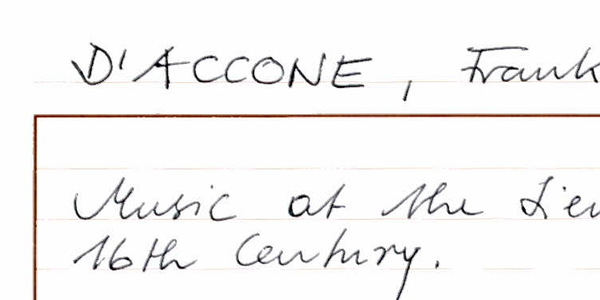 D'ACCONE, Frank
Music at the Sien
16th Century.